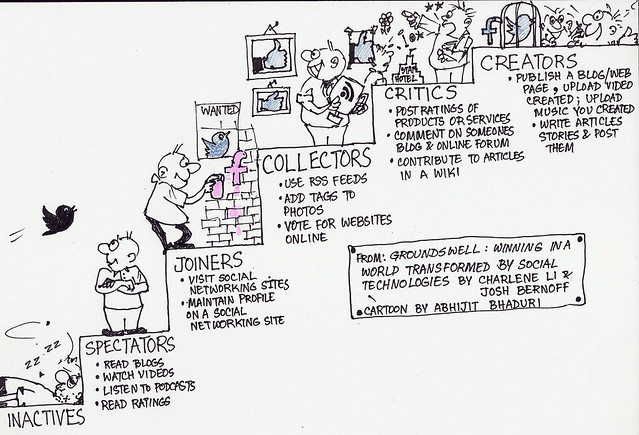 CREATORS
• PUBLISH A BLOG/WEB
PAGE, UPLOAD VIDEO
CREATED; UPLOAD
MUSIC YOU CREATED
• WRITE ARTICLES
STORIES & POST
THEM
HOTEL
CRITICS
• POST RATINGS OF
PRODUCTS OR SERVICES
• COMMENT ON SOMEONES
BLOG & ONLINE FORUM
• CONTRIBUTE TO ARTICLES
IN A WIKI
WANTED
COLLECTORS
• USE RSS FEEDS
• ADD TAGS TO
PHOTOS
• VOTE FOR WEBSITES
ONLINE
f
f
JOINERS
• VISIT SOCIAL
NETWORKING SITES
• MAINTAIN PROFILE
ON A SOCIAL
NETWORKING SITE
FROM: GROUNDSWELL: WINNING IN A
WORLD TRANSFORMED BY SOCIAL
TECHNOLOGIES BY CHARLENE LI &
JOSH BERNOFF
CARTOON BY ABHIJIT BHADURI
SPECTATORS
• READ BLOGS
• WATCH VIDEOS
• LISTEN TO PODCASTS
• READ RATINGS
ZZ ZZ
INACTIVES